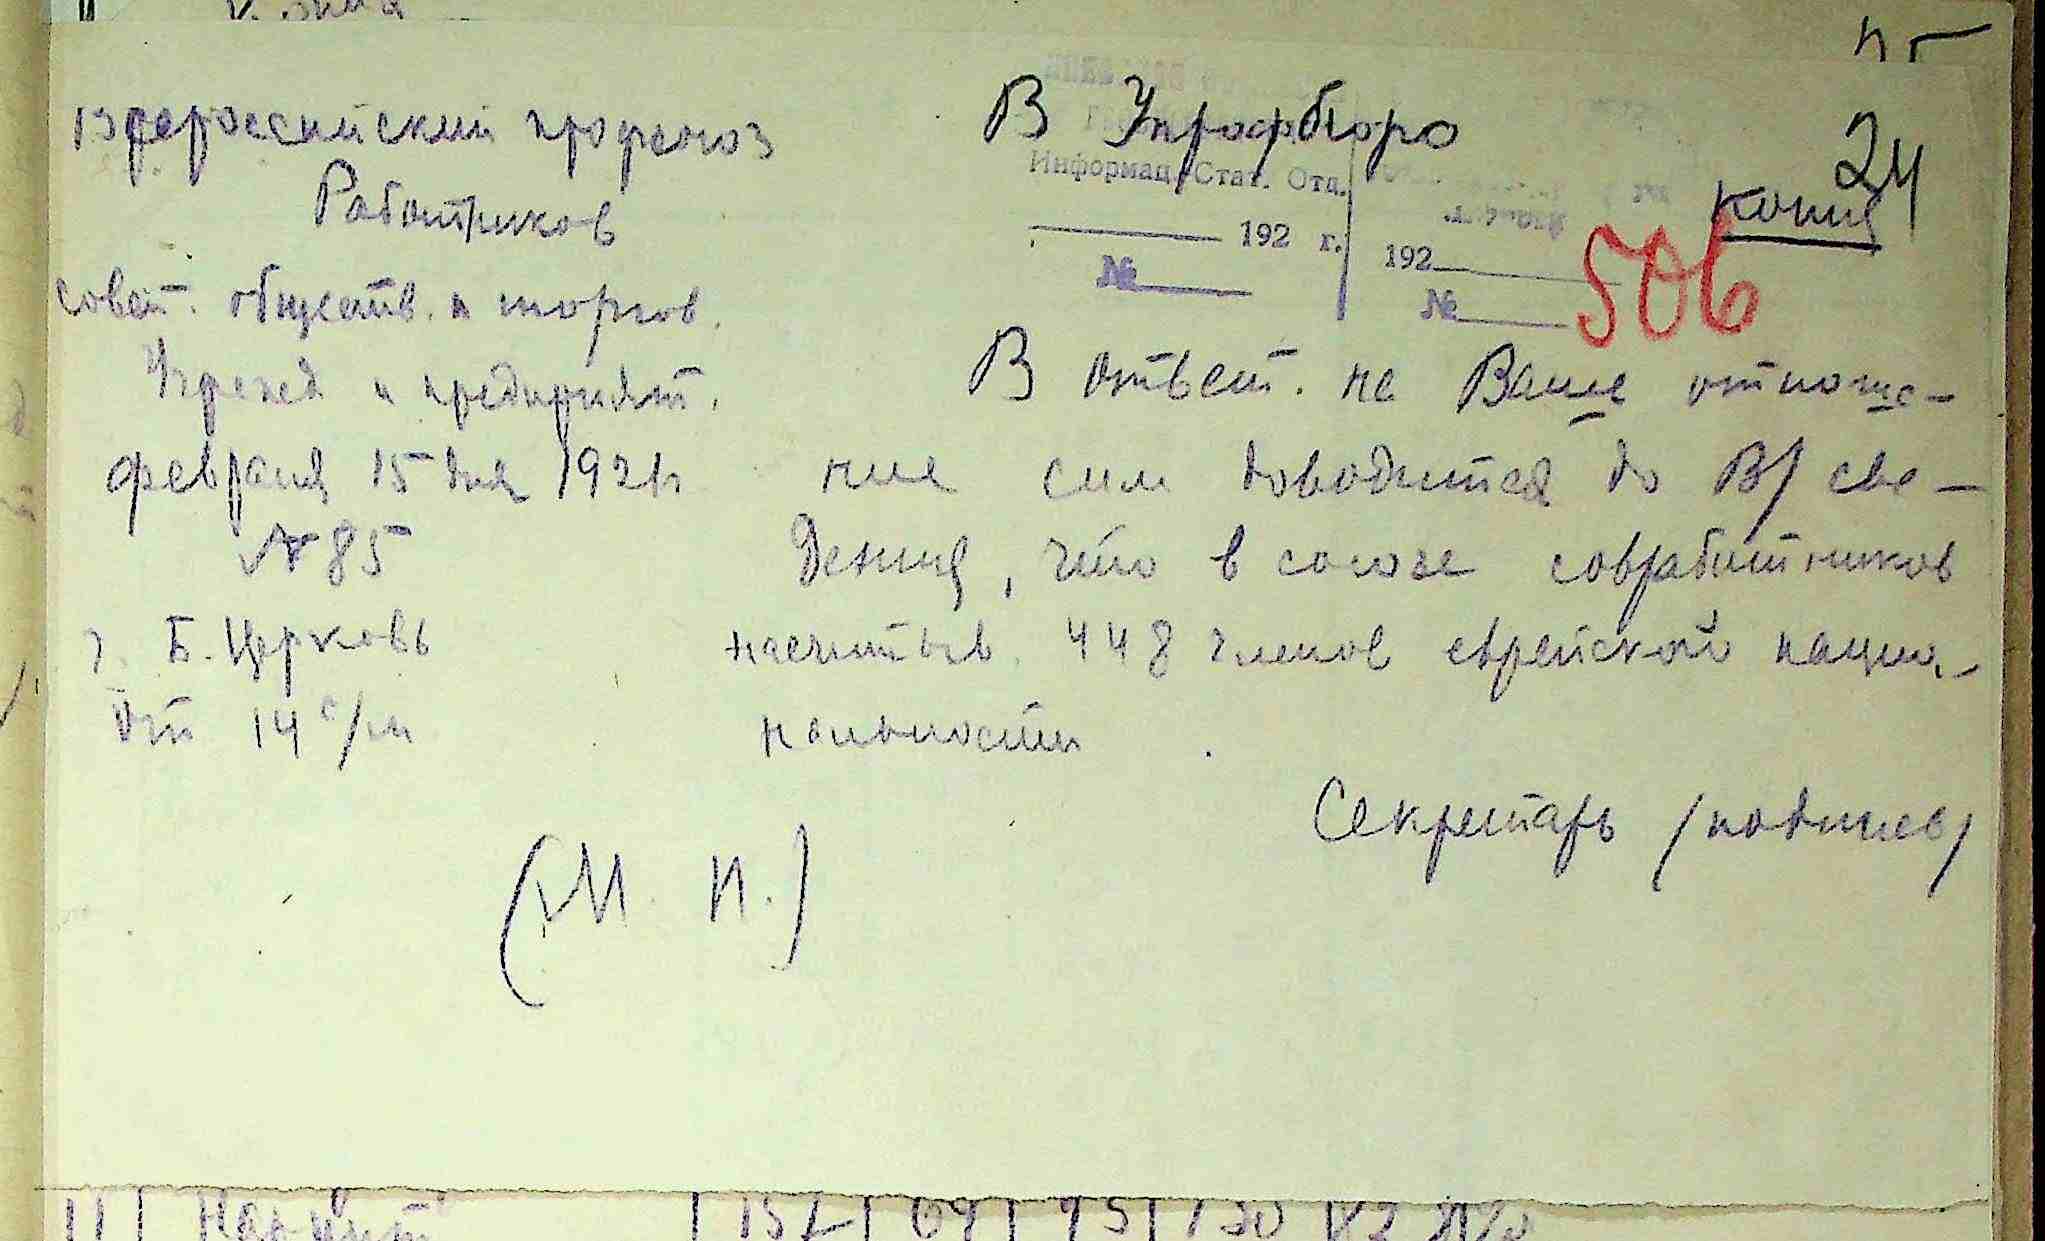 24
Всероссийский профсоюз
Работников
совет. обществ. и торгов.
Учрежд и предприят.
февраля 15 дня 1921г
№ 85
г. Б. Церковь
От 14 с/м
В Упрофбюро
копия
Информац. Стат. Отд.
192 г.
№
192
№
506
В ответ. на Ваше отноше-
ние сим доводится до В/ све-
дения, что в союзе совработников
насчитыв. 448 членов еврейской нацио-
нальности
Секретарь /подпись/
(М. П.)
11 157 69 95 130